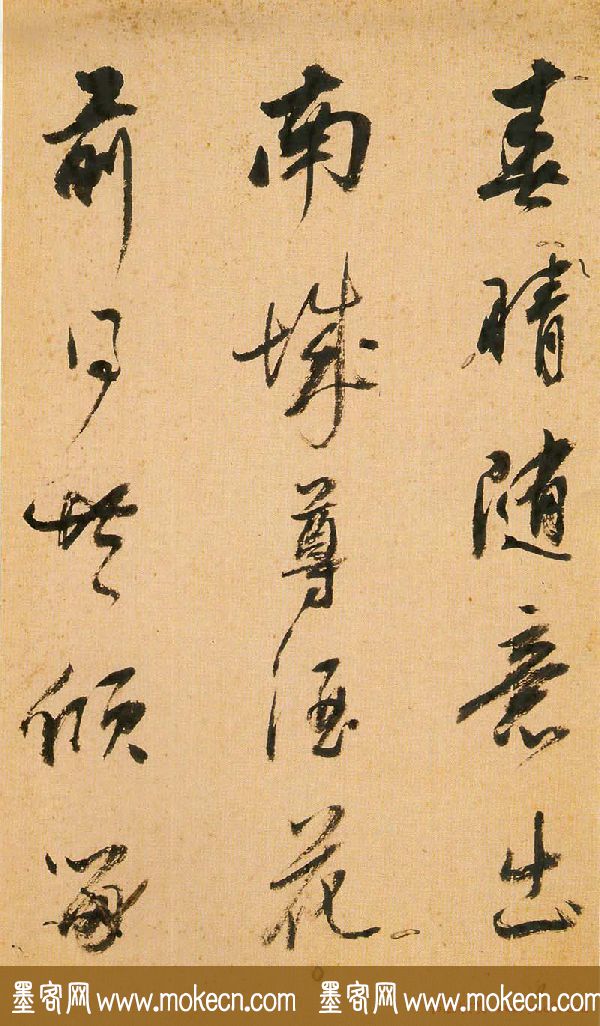 喜晴随意出
南城尊酒花
前傾留
墨客网 www.mokecn.com 墨客网 www.mokecn.com